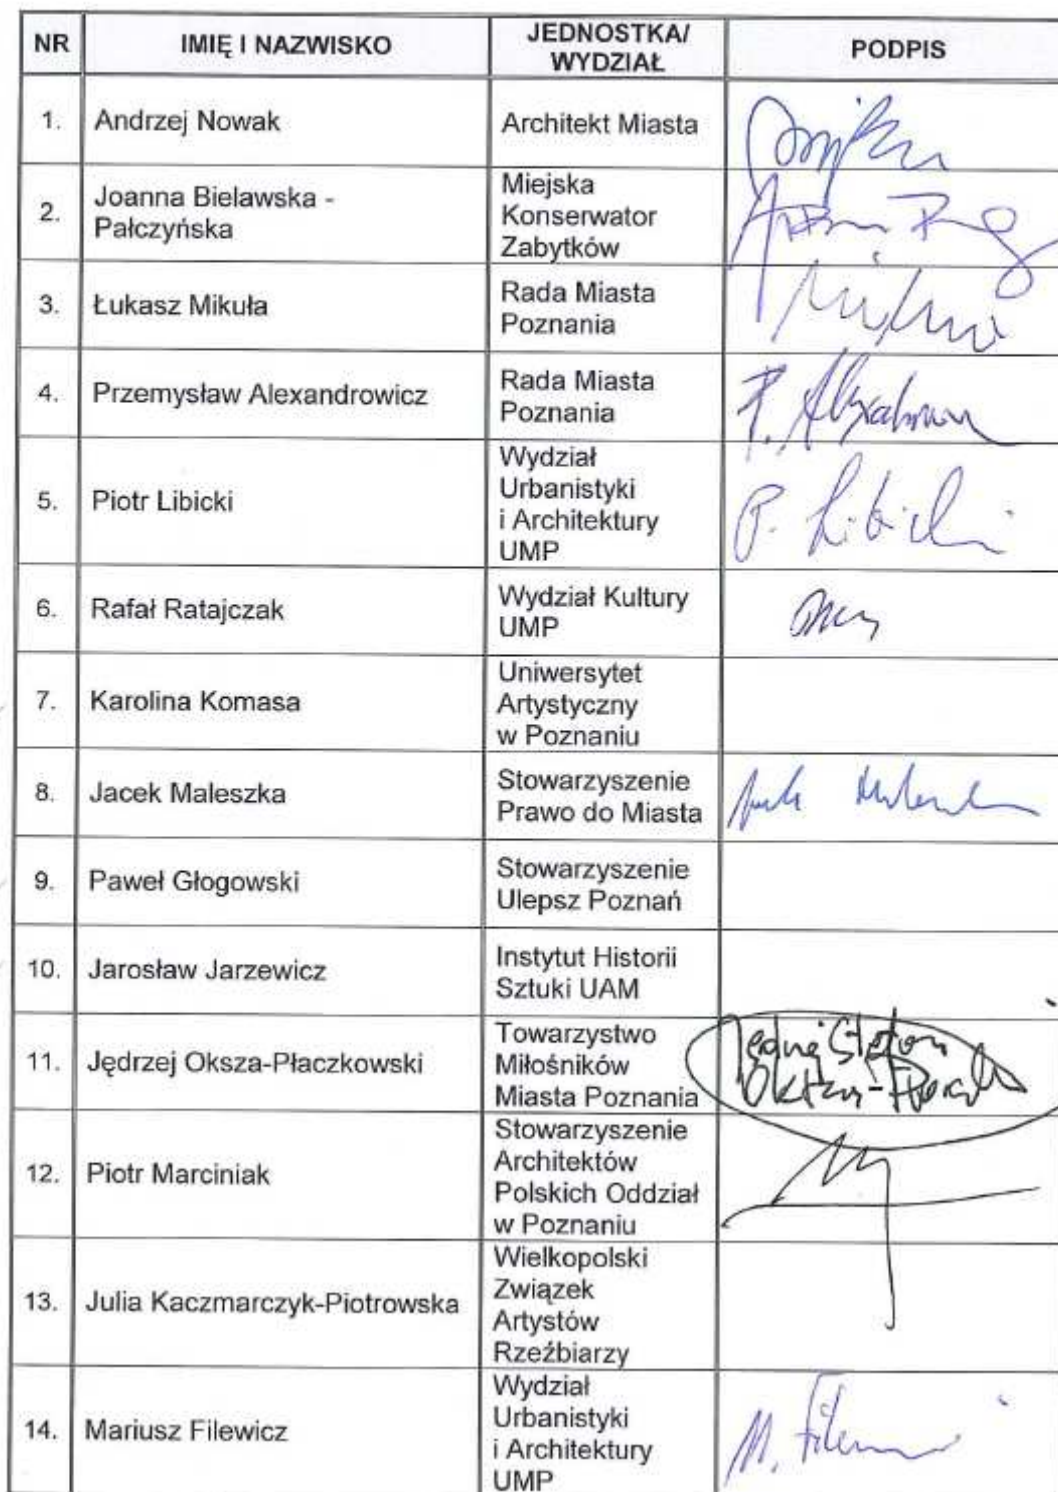 NR IMIĘ I NAZWISKO JEDNOSTKA/ PODPIS
WYDZIAŁ
1. Andrzej Nowak Architekt Miasta
2. Joanna Bielawska - Miejska
Pałczyńska Konserwator
Zabytków
3. Łukasz Mikuła Rada Miasta
Poznania
4. Przemysław Alexandrowicz Rada Miasta
Poznania
5. Piotr Libicki Wydział
Urbanistyki
i Architektury
UMP
P. Libicki
6. Rafał Ratajczak Wydział Kultury
UMP
7. Karolina Komasa Uniwersytet
Artystyczny
w Poznaniu
8. Jacek Maleszka Stowarzyszenie
Prawo do Miasta
9. Paweł Głogowski Stowarzyszenie
Ulepsz Poznań
10. Jarosław Jarzewicz Instytut Historii
Sztuki UAM
11. Jędrzej Oksza-Płaczkowski Towarzystwo
Miłośników
Miasta Poznania
12. Piotr Marciniak Stowarzyszenie
Architektów
Polskich Oddział
w Poznaniu
13. Julia Kaczmarczyk-Piotrowska Wielkopolski
Związek
Artystów
Rzeźbiarzy
14. Mariusz Filewicz Wydział
Urbanistyki
i Architektury
UMP